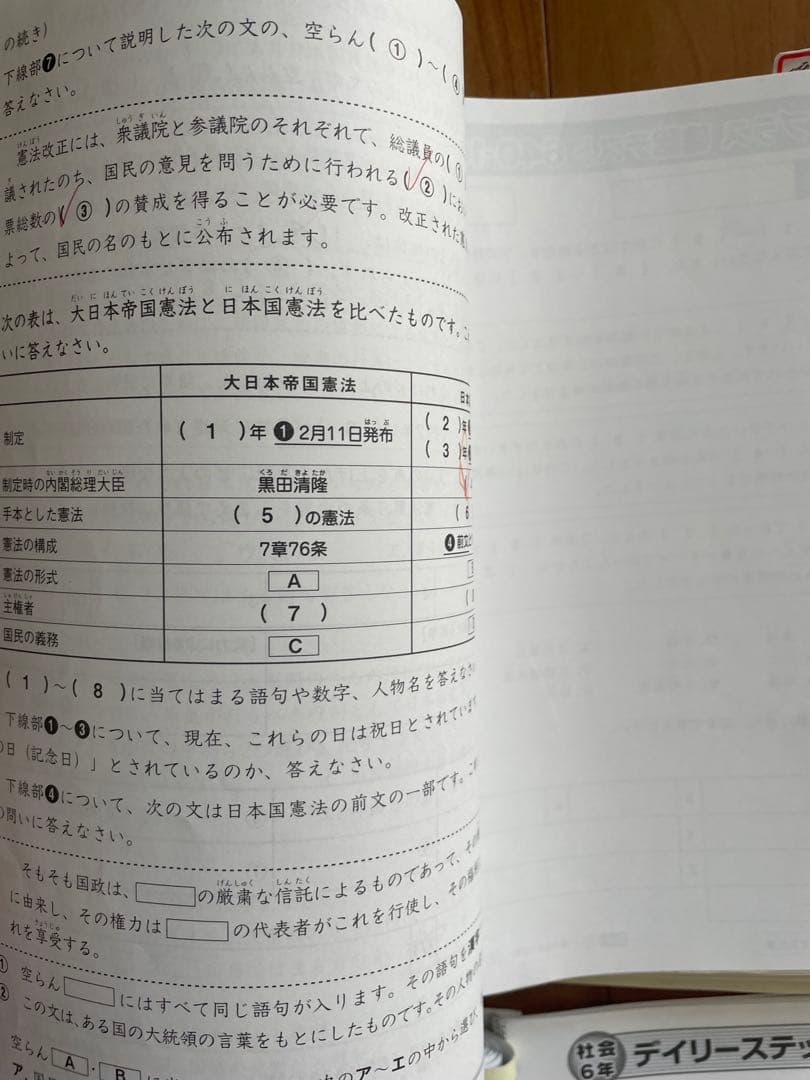 の続き)
下線部❼について説明した次の文の、空らん( ① )~( ④
答えなさい。
憲法改正には、衆議院と参議院のそれぞれで、総議員の( ①
議されたのち、国民の意見を問うために行われる( ② )にお
票総数の( ③ )の賛成を得ることが必要です。改正された
よって、国民の名のもとに公布されます。
次の表は、大日本帝国憲法と日本国憲法を比べたものです。こ
いに答えなさい。
大日本帝国憲法 日本
制定 ( 1 )年 ❶ 2月11日発布 ( 2 )年
( 3 )年
制定時の内閣総理大臣 黒田清隆
手本とした憲法 ( 5 )の憲法 ( 6
憲法の構成 7章76条 ❹前文と
憲法の形式 A
主権者 ( 7 )
国民の義務 C
( 1 )~( 8 )に当てはまる語句や数字、人物名を答えなさい
下線部❶~❸について、現在、これらの日は祝日とされています
の日(記念日)」とされているのか、答えなさい。
下線部❹について、次の文は日本国憲法の前文の一部です。こ
の問いに答えなさい。
そもそも国政は、の厳粛な信託によるものであって、その
に由来し、その権力はの代表者がこれを行使し、その
れを享受する。
① 空らんにはすべて同じ語句が入ります。その語句を漢字
② この文は、ある国の大統領の言葉をもとにしたものです。その人物の
空らん A ・ B
のア~エの中から選び、
ア.
社会
6年 デイリーステッ